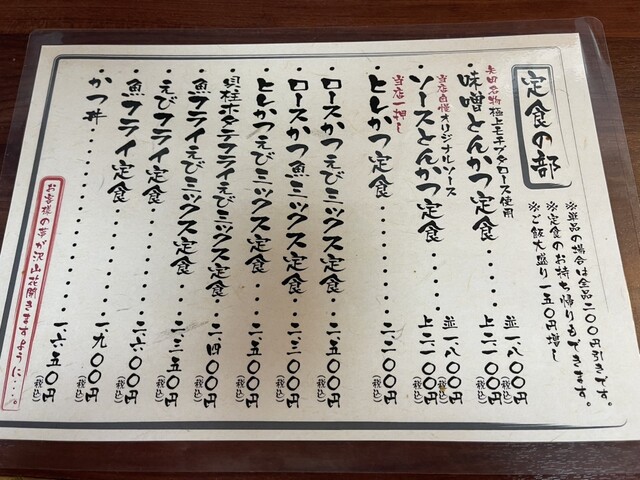 定食の部
※単品の場合は全品二〇〇円引きです。
※定食のお持ち帰りもできます。
※ご飯大盛り一五〇円増し
極上モチブタロース使用
・味噌とんかつ定食・・・・・・並一、八〇〇円(税込)
上二、一〇〇円(税込)
当店自慢オリジナルソース
・ソースとんかつ定食・・・・・並一、八〇〇円(税込)
上二、一〇〇円(税込)
当店一押し
・ヒレかつ定食・・・・・・・・二、二〇〇円(税込)
・ロースかつえびミックス定食・・二、五〇〇円(税込)
・ロースかつ魚ミックス定食・・・二、三〇〇円(税込)
・ヒレかつえびミックス定食・・・二、五〇〇円(税込)
・貝柱ホタテフライえびミックス定食・・二、四〇〇円(税込)
・魚フライえびミックス定食・・・二、三五〇円(税込)
・えびフライ定食・・・・・・・二、六〇〇円(税込)
・魚フライ定食・・・・・・・・一、九〇〇円(税込)
・かつ丼・・・・・・・・・・・一、六五〇円(税込)
お客様の夢が沢山花開きますように・・・。